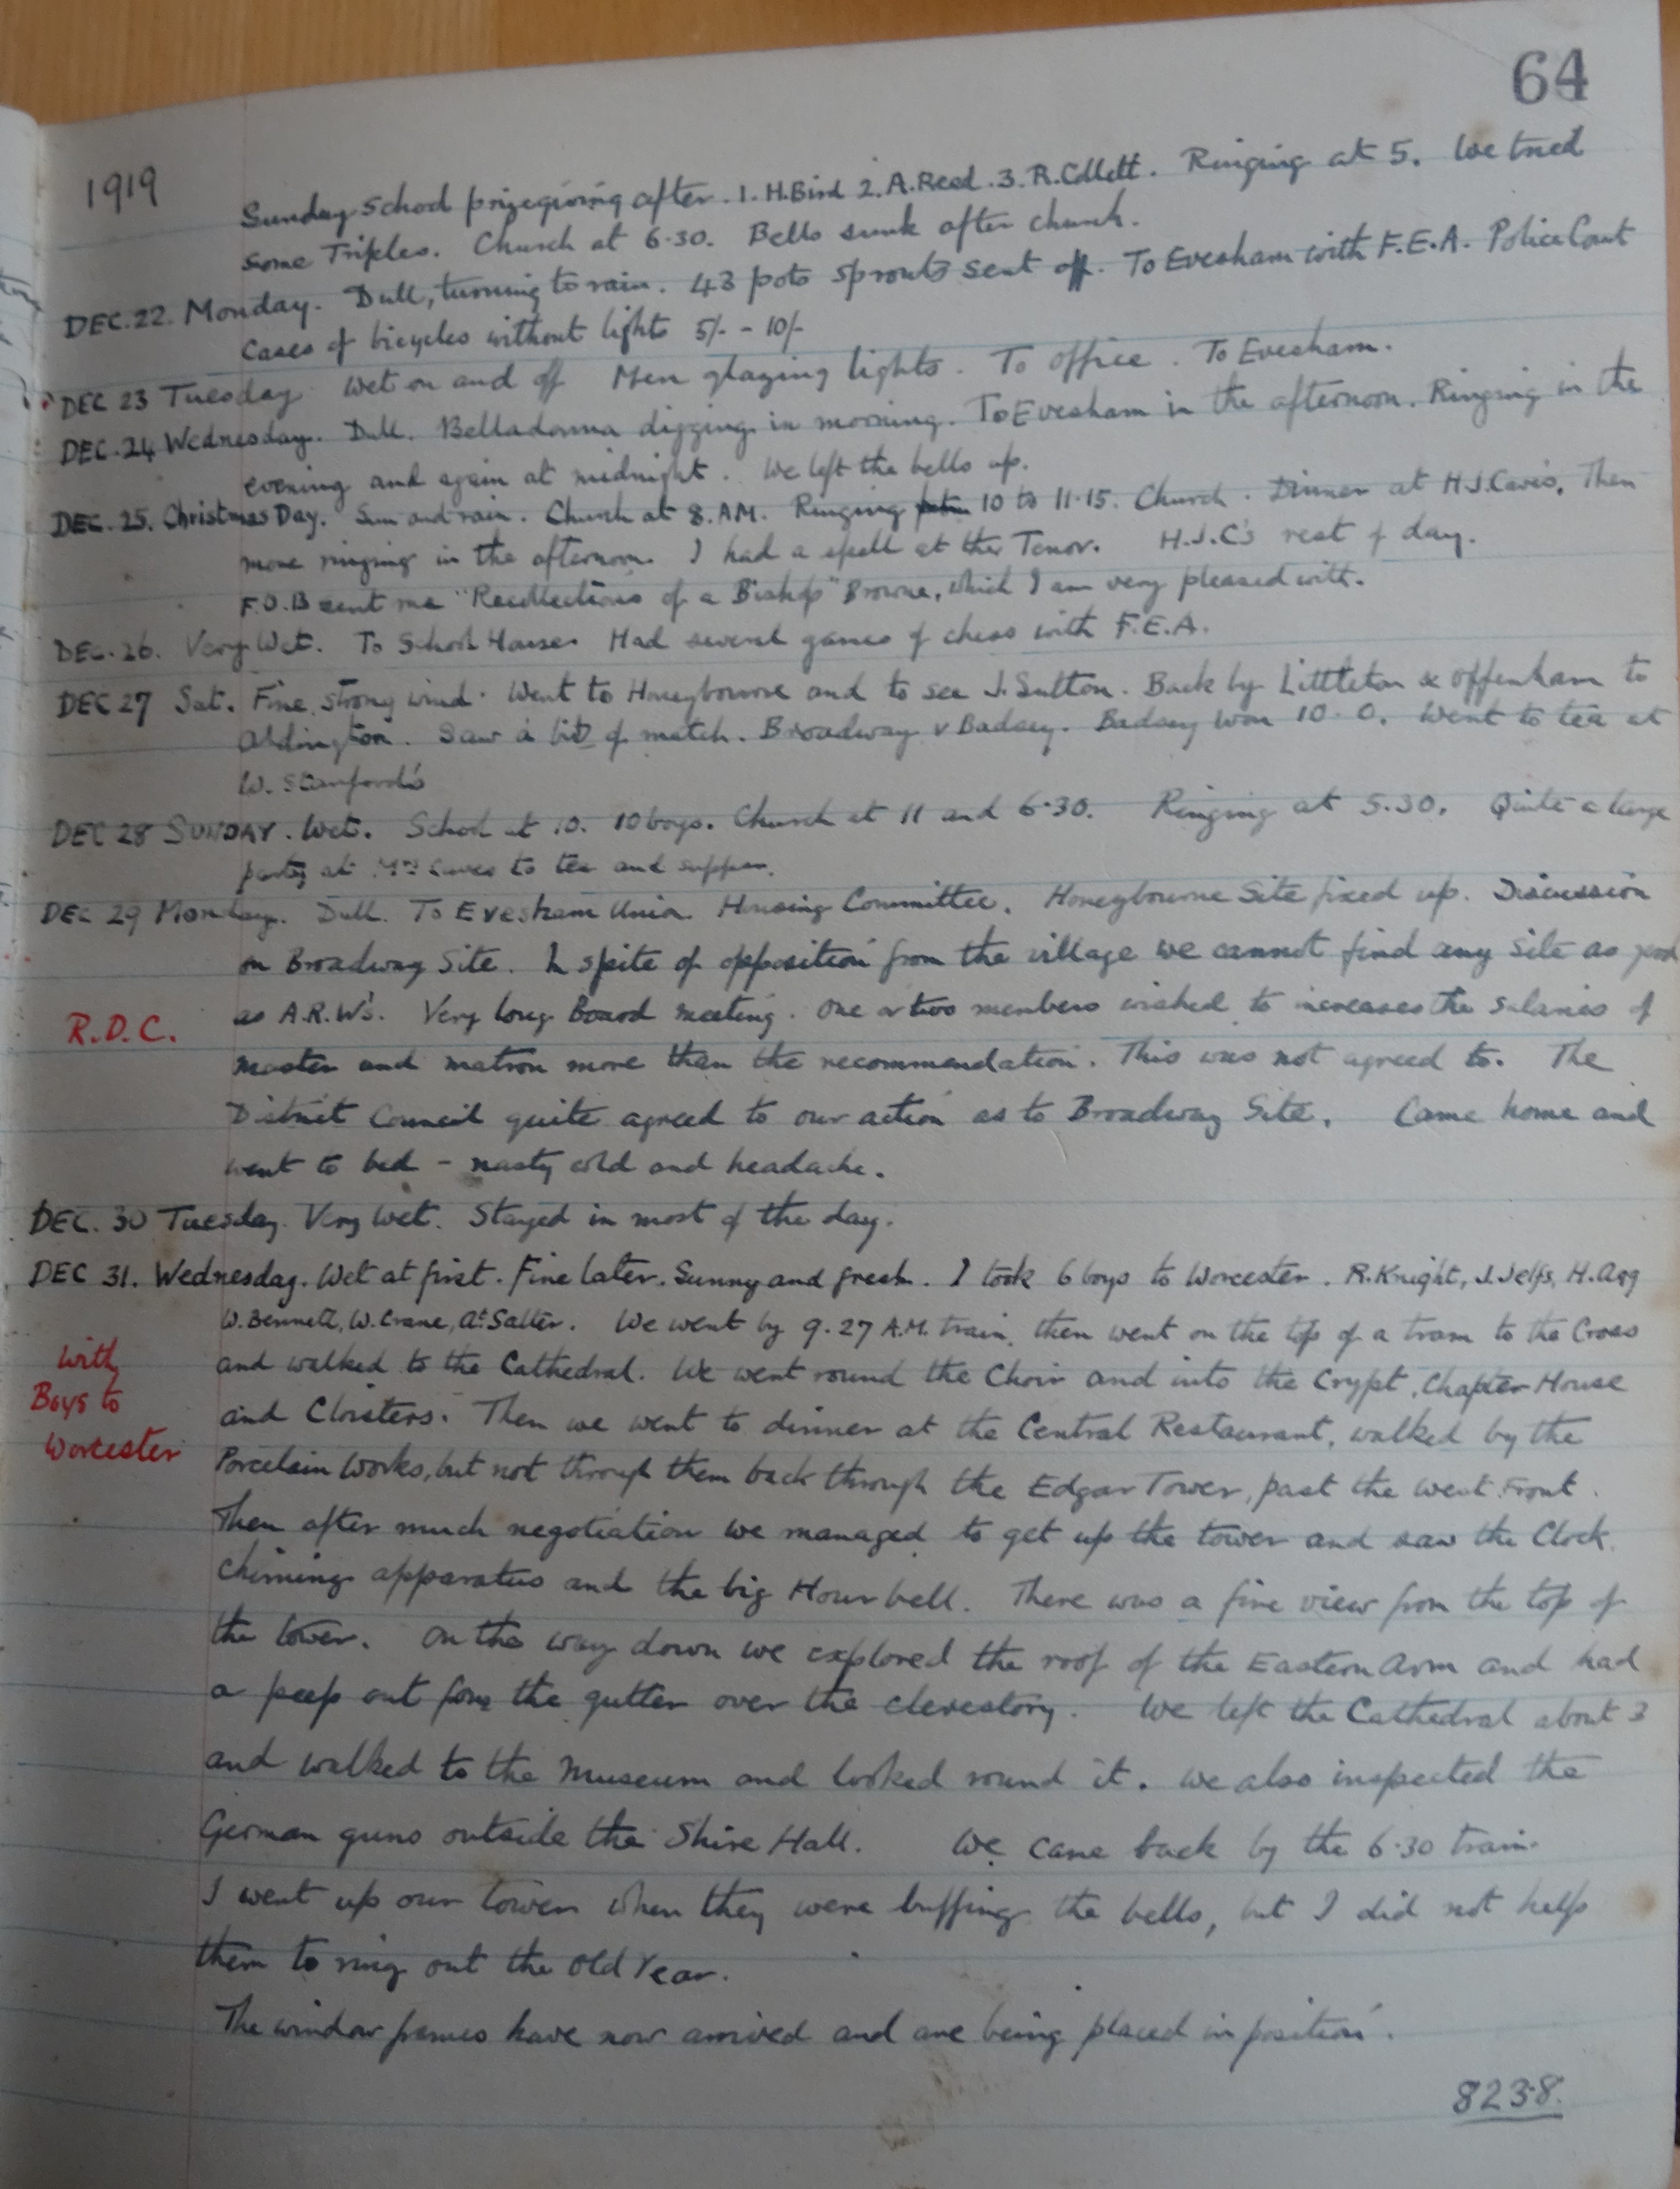 64
1919
Sunday School prizegiving after. 1. H.Bird 2. A.Reed. 3. R.Collett. Ringing at 5. We tried
some Triples. Church at 6.30. Bells sunk after church.
DEC. 22. Monday. Dull, turning to rain. 43 pots sprouts sent off. To Evesham with F.E.A. Police Court
Cases of bicycles without lights 5/- - 10/-
DEC 23 Tuesday. Wet on and off Men glazing lights. To office. To Evesham.
DEC. 24 Wednesday. Dull. Belladonna digging in morning. To Evesham in the afternoon. Ringing in the
evening and again at midnight. We left the bells up.
DEC. 25. Christmas Day. Sun and rain. Church at 8. AM. Ringing 10 to 11.15. Church. Dinner at H.J.Cave's. Then
more ringing in the afternoon. I had a spell at the Tenor. H.J.C's rest of day.
F.O.B sent me "Recollections of a Bishop" Browne, which I am very pleased with.
DEC. 26. Very Wet. To School House. Had several games of chess with F.E.A.
DEC 27 Sat. Fine, strong wind. Went to Honeybourne and to see J. Sutton. Back by Littleton & Offenham to
Aldington. Saw a bit of match. Broadway v Badsey. Badsey won 10-0. Went to tea at
W. Stanford's
DEC 28 SUNDAY. Wet. School at 10. 10 boys. Church at 11 and 6.30. Ringing at 5.30. Quite a large
party at Mrs Caves to tea and supper.
DEC 29 Monday. Dull. To Evesham Union. Housing Committee. Honeybourne Site fixed up. Discussion
on Broadway Site. In spite of opposition from the village we cannot find any site as good
R.D.C.
as A.R.W's. Very long Board meeting. One or two members wished to increases the salaries of
master and matron more than the recommendation. This was not agreed to. The
District Council quite agreed to our action as to Broadway Site. Came home and
went to bed - nasty cold and headache.
DEC. 30 Tuesday. Very Wet. Stayed in most of the day.
DEC 31. Wednesday. Wet at first. Fine later. Sunny and fresh. I took 6 boys to Worcester. R.Knight, J.Jelfs, H.Agg
W.Bennett, W.Crane, At Salter. We went by 9.27 A.M. train, then went on the top of a tram to the Cross
With
Boys to
Worcester
and walked to the Cathedral. We went round the Choir and into the Crypt, Chapter House
and Cloisters. Then we went to dinner at the Central Restaurant, walked by the
Porcelain Works, but not through them back through the Edgar Tower, past the West Front.
Then after much negotiation we managed to get up the tower and saw the Clock,
chiming apparatus and the big Hour bell. There was a fine view from the top of
the tower. On the way down we explored the roof of the Eastern Arm and had
a peep out from the gutter over the clerestory. We left the Cathedral about 3
and walked to the Museum and looked round it. We also inspected the
German guns outside the Shire Hall. We came back by the 6.30 train.
I went up our tower when they were buffing the bells, but I did not help
them to ring out the Old Year.
The window frames have now arrived and are being placed in position.
8238.